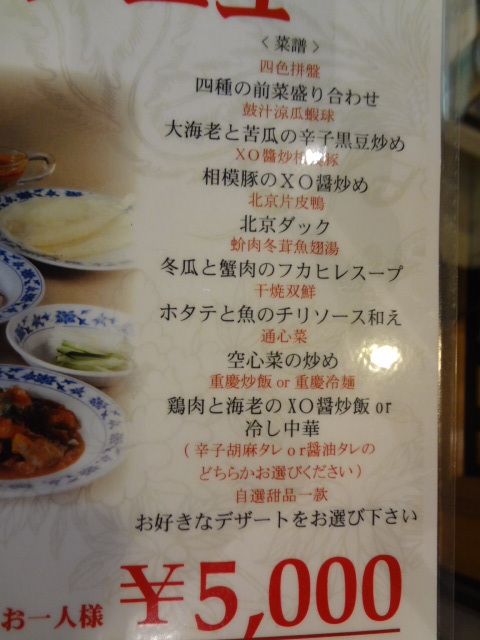 〈菜譜〉
四色拼盤
四種の前菜盛り合わせ
豉汁涼瓜蝦球
大海老と苦瓜の辛子黒豆炒め
XO醬炒
相模豚のXO醤炒め
北京片皮鴨
北京ダック
蚧肉冬茸魚翅湯
冬瓜と蟹肉のフカヒレスープ
干焼双鮮
ホタテと魚のチリソース和え
通心菜
空心菜の炒め
重慶炒飯 or 重慶冷麺
鶏肉と海老のXO醤炒飯or
冷し中華
(辛子胡麻タレor醤油タレの
どちらかお選びください)
自選甜品一款
お好きなデザートをお選び下さい
お一人様 ¥5,000